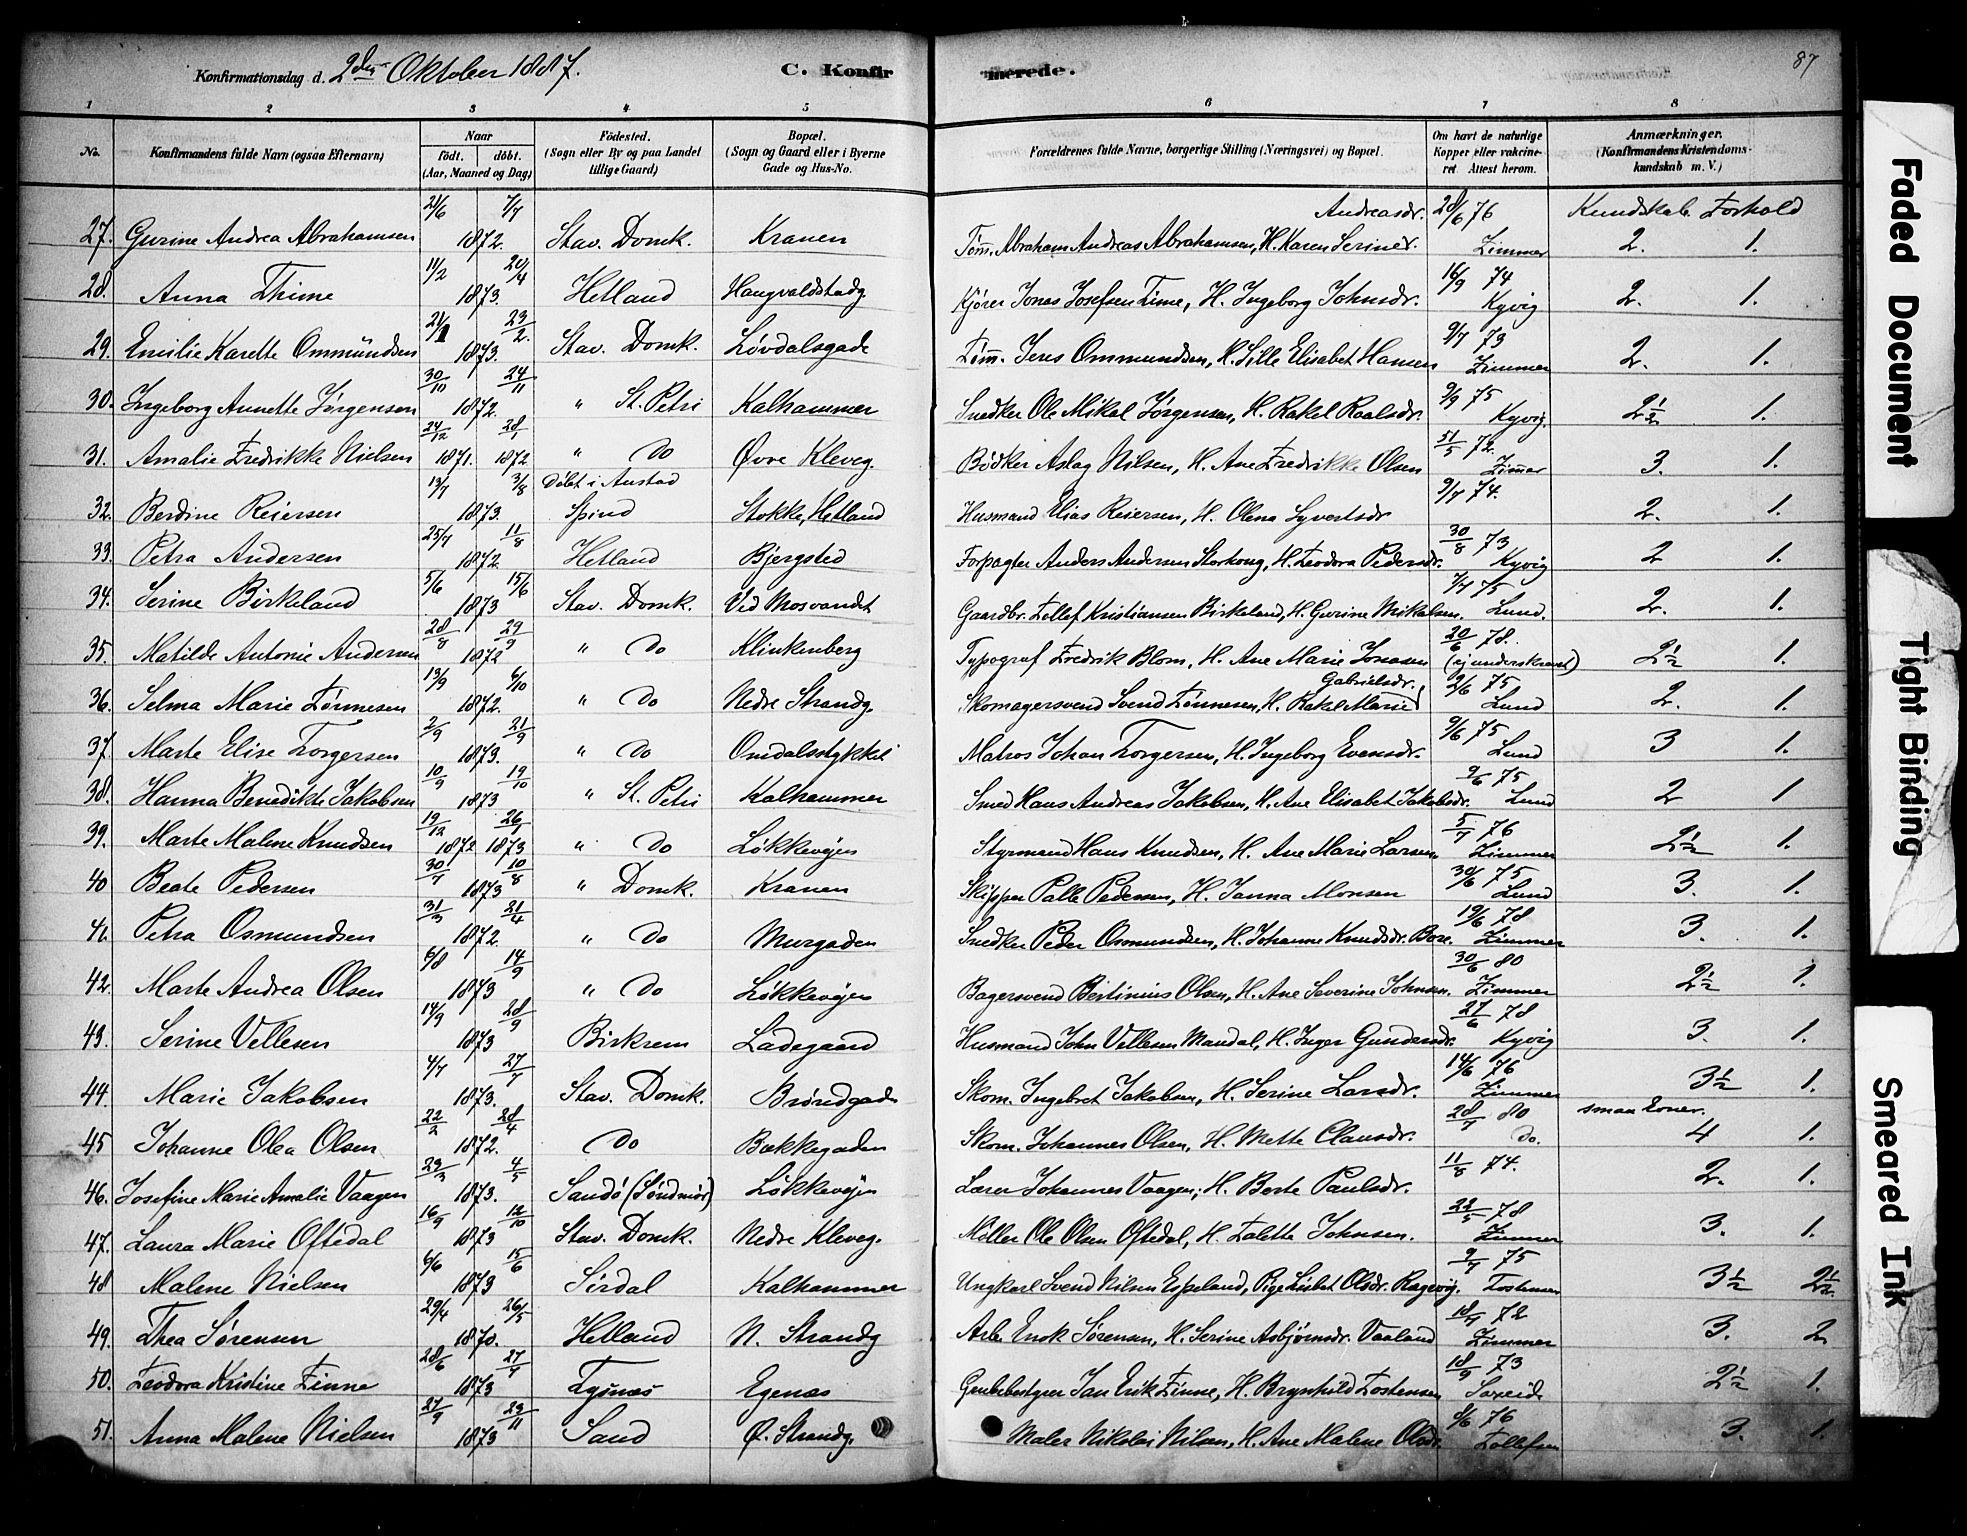 Konfirmationsdag d. 2den Oktober 1887.
C. Konfirmerede.
87
1 2 3 4 5 6 7 8
No.
Konfirmandens fulde Navn (ogsaa Efternavn)
Naar født. døbt. (Aar, Maaned og Dag)
Fødested. (Sogn eller By og paa Landet tillige Gaard)
Bopæl. (Sogn og Gaard eller i Byerne Gade og Hus-No.
Forældrenes fulde Navne, borgerlige Stilling (Næringsvei) og Bopæl.
Om havt de naturlige Kopper eller vakcineret. Attest herom.
Anmærkninger. (Konfirmandens Kristendomskundskab m. V.)
Kundskab. Forhold
27. Gurine Andrea Abrahamsen 21/6 7/7 1872. Stav. Domk. Kranen Tøm. Abraham Andreas Abrahamsen, H. Karen Serine Andreasdr. 28/6 76 Zimmer 2. 1.
28. Anna Thime 11/2 20/4 1873. Hetland Haugvaldstadg Kjører Jonas Josefsen Time, H. Ingeborg Johnsdr. 16/9 74 Kyvig 2. 1.
29. Emilie Karette Ommundsen 21/1 23/2. 1873. Stav. Domk. Løvdalsgade Tøm. Jens Ommundsen, H. Sille Elisabet Hansen 9/7 73 Zimmer 2. 1.
30. Ingeborg Annette Jørgensen 30/10 24/11 1872. " St. Petri Kalhammer Snedker Ole Mikal Jørgensen, H. Rakel Roalsdr. 9/9 75 Kyvig. 2½ 1.
31. Amalie Fredrikke Nielsen 24/12 1871. 28/1 1872 " Do Øvre Kleveg. Bødker Aslag Nilsen, H. Ane Fredrikke Olsen 72. Zimmer 3. 1.
32. Berdine Reiersen 13/7 3/8 1873. Døbt i Austad Spind Stokke, Hetland Husmand Elias Reiersen, H. Olena Syvertsdr 9/7 74. 2. 1.
33. Petra Andersen 25/7 11/8 1872. Hetland Bjergsted Forpagter Anders Andersen Storhoug, H. Teodora Pedersdr. 30/8 73 Kyvig 2 1.
34. Serine Birkeland 5/6 15/6 1873 Stav. Domk. Ved Mosvandet Gaardbr. Tellef Kristiansen Birkeland, H. Gurine Mikalsen. 7/7 75 Lund. 2. 1.
35. Matilde Antonie Andersen 28/8 29/9 1872 " Do Klinkenberg Typograf Fredrik Blom, H. Ane Marie Jonasen 20/6 78. (ej underskrevet) 2½ 1.
36. Selma Marie Tønnesen 13/9 6/10 1872. " Do Nedre Strandg. Skomagersvend Svend Tønnesen, H. Rakel Marie Gabrielsdr. 2/6 75 Lund 2. 1.
37. Marte Elise Torgersen 2/9 21/9 1873. " Do Omdalsstykket Matros Johan Torgersen, H. Ingeborg Evensdr. 9/6 75 Lund 3 1.
38. Hanna Benedikte Jakobsen 10/9 19/10 1873 " St. Petri Kalhammer Smed Hans Andreas Jakobsen, H. Ane Elisabet Jakobsdr. 9/6 75 Lund 2 1
39. Marte Malene Knudsen 19/12 1872 26/1 1873 " Do Løkkevejen Styrmand Hans Knudsen, H. Ane Marie Larsen. 5/7 76 Zimmer 2½ 1.
40 Beate Pedersen 30/7 10/8 1873 " Domk. Kranen Skipper Palle Pedersen, H. Janna Monsen 30/6 75 Lund 3. 1.
41. Petra Osmundsen 31/3 21/4 1872. " Do Murgaden Snedker Peder Osmundsen, H. Johanne Knudsdr. Bore. 19/6 78 Zimmer 3. 1.
42. Marte Andrea Olsen 6/8 14/9 1873 " Do Løkkevejen Bagersvend Bertinius Olsen, H. Ane Severine Johnsen. 30/6 80 Zimmer 2½ 1.
43. Serine Vellesen 14/9 28/9 1873 Birkrem Ladegaard Husmand John Vellesen Mandal, H. Inger Gundersdr. 27/6 78 Kyvig 3. 1.
44. Marie Jakobsen 4/7 27/7 1873. Stav. Domk. Brøndgade Skom. Ingebret Jakobsen, H. Serine Larsdr. 14/6 76 Zimmer 3½ 1.
45 Johanne Olea Olsen 22/2 28/4 1872. Do Bakkegaden Skom. Johannes Olsen, H. Mette Clausdr. 28/7 80 Do. smaa Evner. 4 1.
46. Josefine Marie Amalie Vaagen 23/3 4/5 1873. Sandø (Søndmør) Løkkevejen Lærer Johannes Vaagen, H. Berte Paulsdr. 11/8 74. 2. 1.
47. Laura Marie Oftedal 16/9 12/10 1873 Stav. Domk. Nedre Kleveg. Møller Ole Olsen Oftedal, H. Tolette Johnsen. 22/5 78 Zimmer 3. 1.
48 Malene Nielsen 6/6 15/6 1873 Sirdal Kalhammer Ungkarl Svend Nilsen Espeland, Pige Lisbet Olsdr. Ragevig. 9/7 75 Tostensen 3½ 2½
49. Thea Sørensen 29/4 26/5 1870. Hetland N. Strandg Arb. Enok Sørensen, H. Serine Asbjørnsdr. Vaaland 18/7 72 Zimmer 3. 2
50. Teodora Kristine Finne 28/6 27/7 1873 Tysnæs Egenæs Grubebestyrer Jan Erik Finne, H. Brynhild Tostensen 18/9 73 2½ 1.
51. Anna Malene Nielsen 27/9 23/11 1873 Sand Ø. Strandg. Maler Nikolai Nilsen, H. Ane Malene Olsdr. 8/6 76 Tollefsen 3. 1.
Faded Document
Tight Binding
Smeared Ink